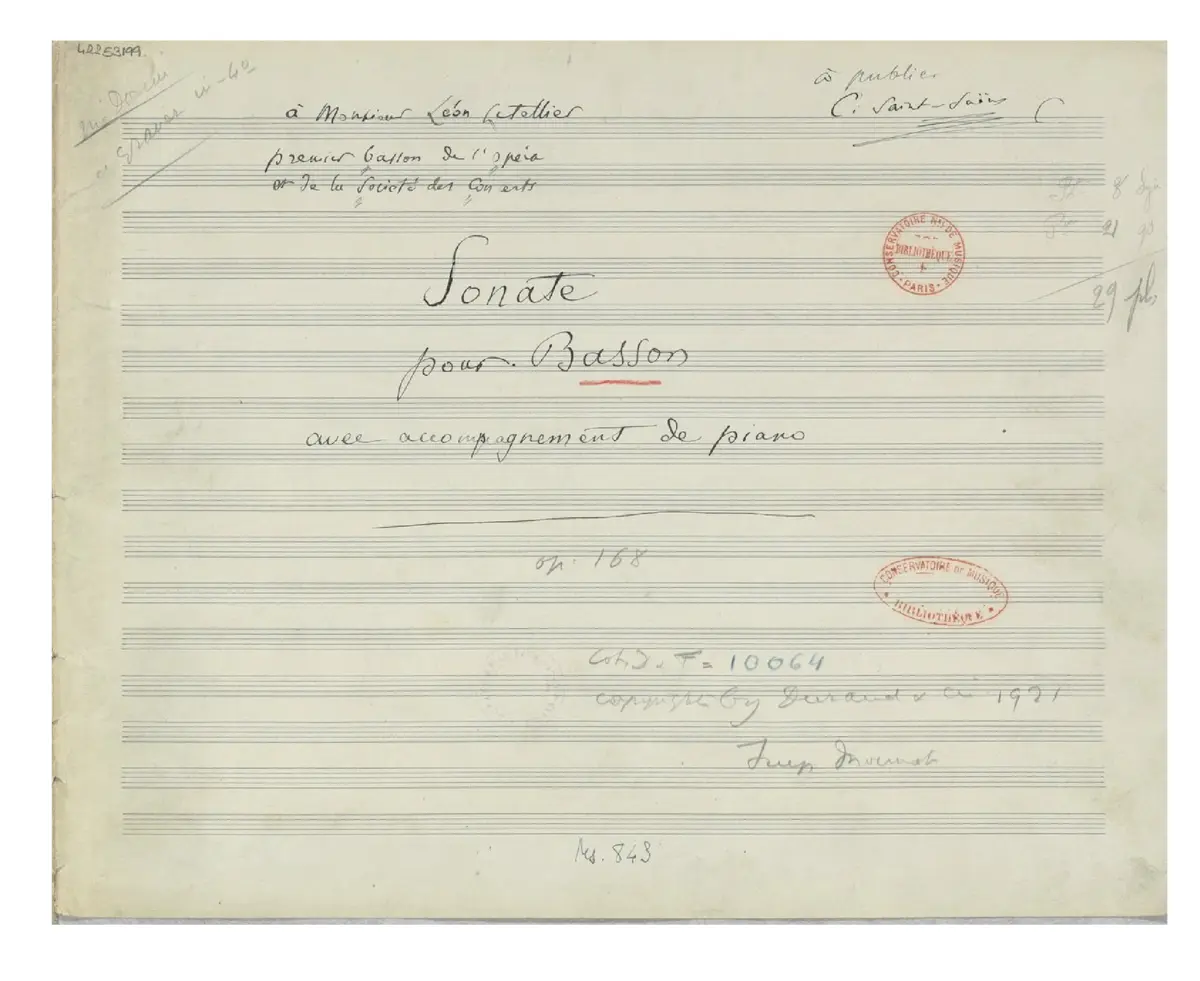 42253199
in-4°
à publier
C. Saint-Saëns
à Monsieur Léon Letellier
premier basson de l'opéra
et de la Société des Concerts
8
21
29 pl.
CONSERVATOIRE NAL DE MUSIQUE
BIBLIOTHÈQUE
PARIS
Sonate
pour Basson
avec accompagnement de piano
op. 168
CONSERVATOIRE DE MUSIQUE
BIBLIOTHÈQUE
F = 10064
copyright by Durand & Cie 1921
Ms. 843